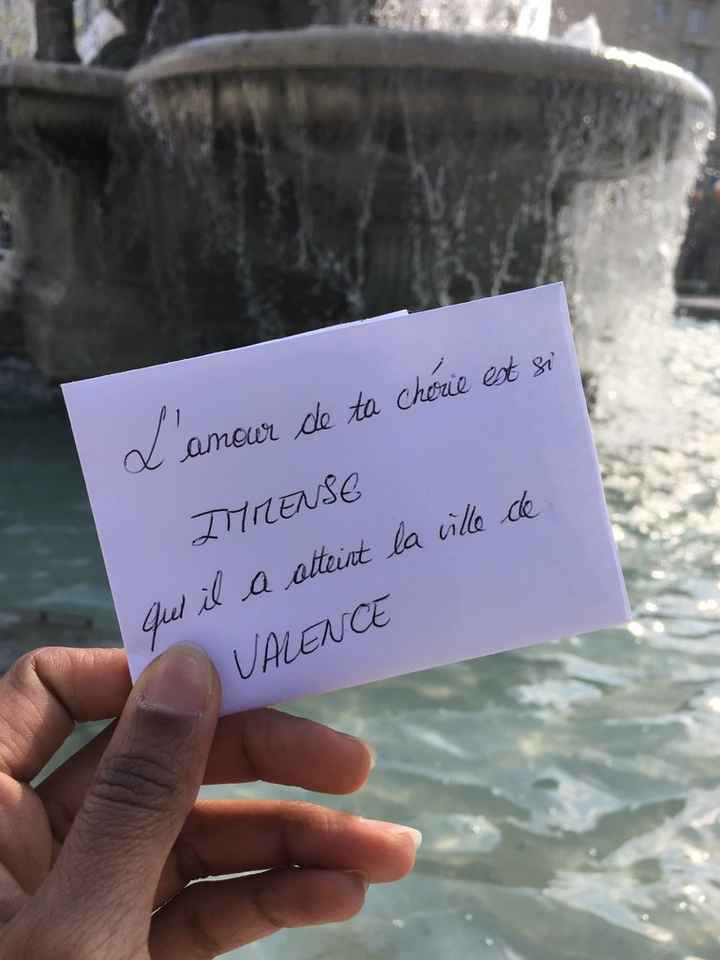 L'amour de ta chérie est si
IMMENSE
qu'il a atteint la ville de
VALENCE